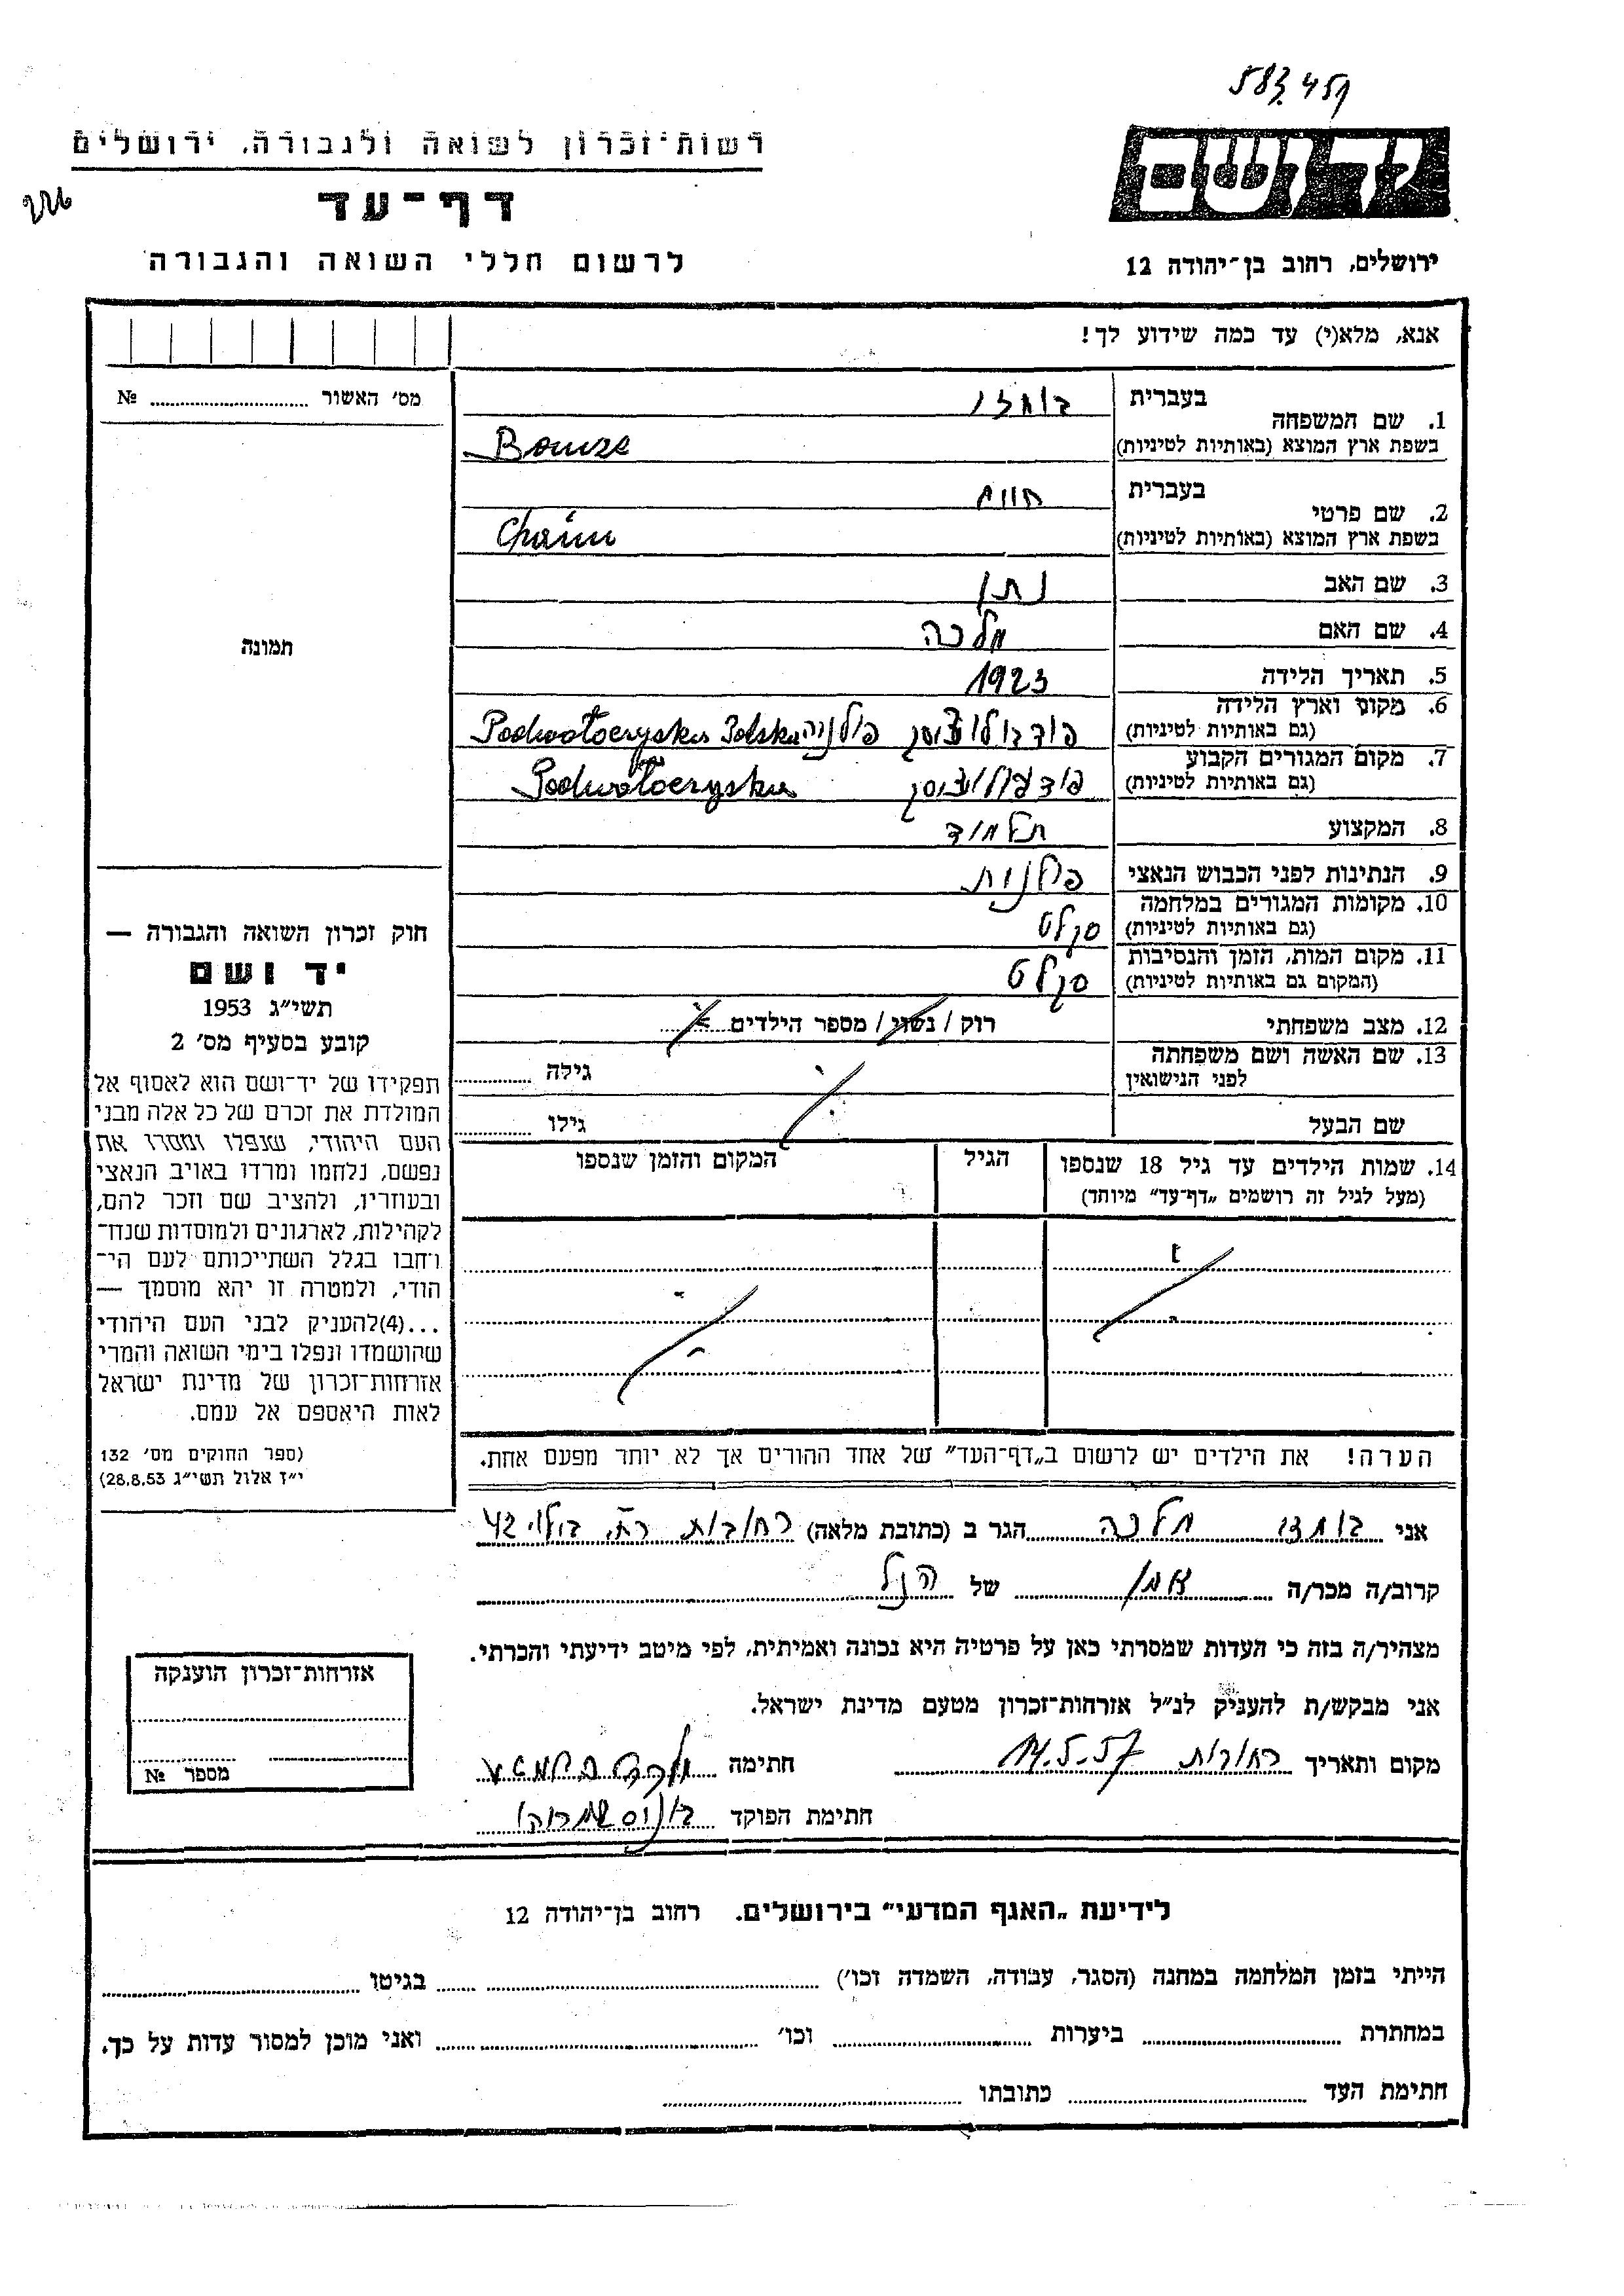 583,459
יד ושם
רשות־זכרון לשואה ולגבורה, ירושלים
226
דף־עד
ירושלים, רחוב בן־יהודה 12
לרשום חללי השואה והגבורה
אנא, מלא(י) עד כמה שידוע לך!
מס׳ האשור № 
1. שם המשפחה
בעברית
בשפת ארץ המוצא (באותיות לטיניות)
Bomze
2. שם פרטי
בעברית חיים
בשפת ארץ המוצא (באותיות לטיניות)
Chaim
3. שם האב נתן
4. שם האם מלכה
תמונה
5. תאריך הלידה 1923
6. מקום וארץ הלידה
(גם באותיות לטיניות)
פולניה Podwołoczyska Polska
7. מקום המגורים הקבוע
(גם באותיות לטיניות)
Podwołoczyska
8. המקצוע תלמיד
9. הנתינות לפני הכבוש הנאצי פולנית
10. מקומות המגורים במלחמה
(גם באותיות לטיניות)
סקלט
11. מקום המות, הזמן והנסיבות
(המקום גם באותיות לטיניות)
סקלט
12. מצב משפחתי רוק / נשוי / מספר הילדים
13. שם האשה ושם משפחתה
לפני הנישואין
גילה
שם הבעל גילו
14. שמות הילדים עד גיל 18 שנספו
(מעל לגיל זה רושמים „דף־עד״ מיוחד)
הגיל
המקום והזמן שנספו
חוק זכרון השואה והגבורה —
יד ושם
תשי״ג 1953
קובע בסעיף מס׳ 2
תפקידו של יד־ושם הוא לאסוף אל
המולדת את זכרם של כל אלה מבני
העם היהודי, שנפלו ומסרו את
נפשם, נלחמו ומרדו באויב הנאצי
ובעוזריו, ולהציב שם וזכר להם,
לקהילות, לארגונים ולמוסדות שנח־
רחבו בגלל השתייכותם לעם הי־
הודי, ולמטרה זו יהא מוסמך —
...(4)להעניק לבני העם היהודי
שהושמדו ונפלו בימי השואה והמרי
אזרחות־זכרון של מדינת ישראל
לאות היאספם אל עמם.
(ספר החוקים מס׳ 132
י״ז אלול תשי״ג 28.8.53)
הערה! את הילדים יש לרשום ב„דף־העד״ של אחד ההורים אך לא יותר מפעם אחת.
אני מלכה הגר ב (כתובת מלאה) רחובות 42
קרוב/ה מכר/ה של הנ״ל
מצהיר/ה בזה כי העדות שמסרתי כאן על פרטיה היא נכונה ואמיתית, לפי מיטב ידיעתי והכרתי.
אני מבקש/ת להעניק לנ״ל אזרחות־זכרון מטעם מדינת ישראל.
מקום ותאריך רחובות 14.5.57 חתימה
חתימת הפוקד
אזרחות־זכרון הוענקה
מספר №
לידיעת „האגף המדעי״ בירושלים. רחוב בן־יהודה 12
הייתי בזמן המלחמה במחנה (הסגר, עבודה, השמדה וכו׳) בגיטו
במחתרת ביערות וכו׳ ואני מוכן למסור עדות על כך.
חתימת העד כתובתו